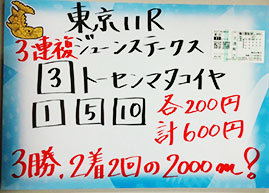 東京11R
3連複ジューンステークス
3 トーセンマタコイヤ
1 5 10 各200円
計600円
3勝、2着2回の2000m!